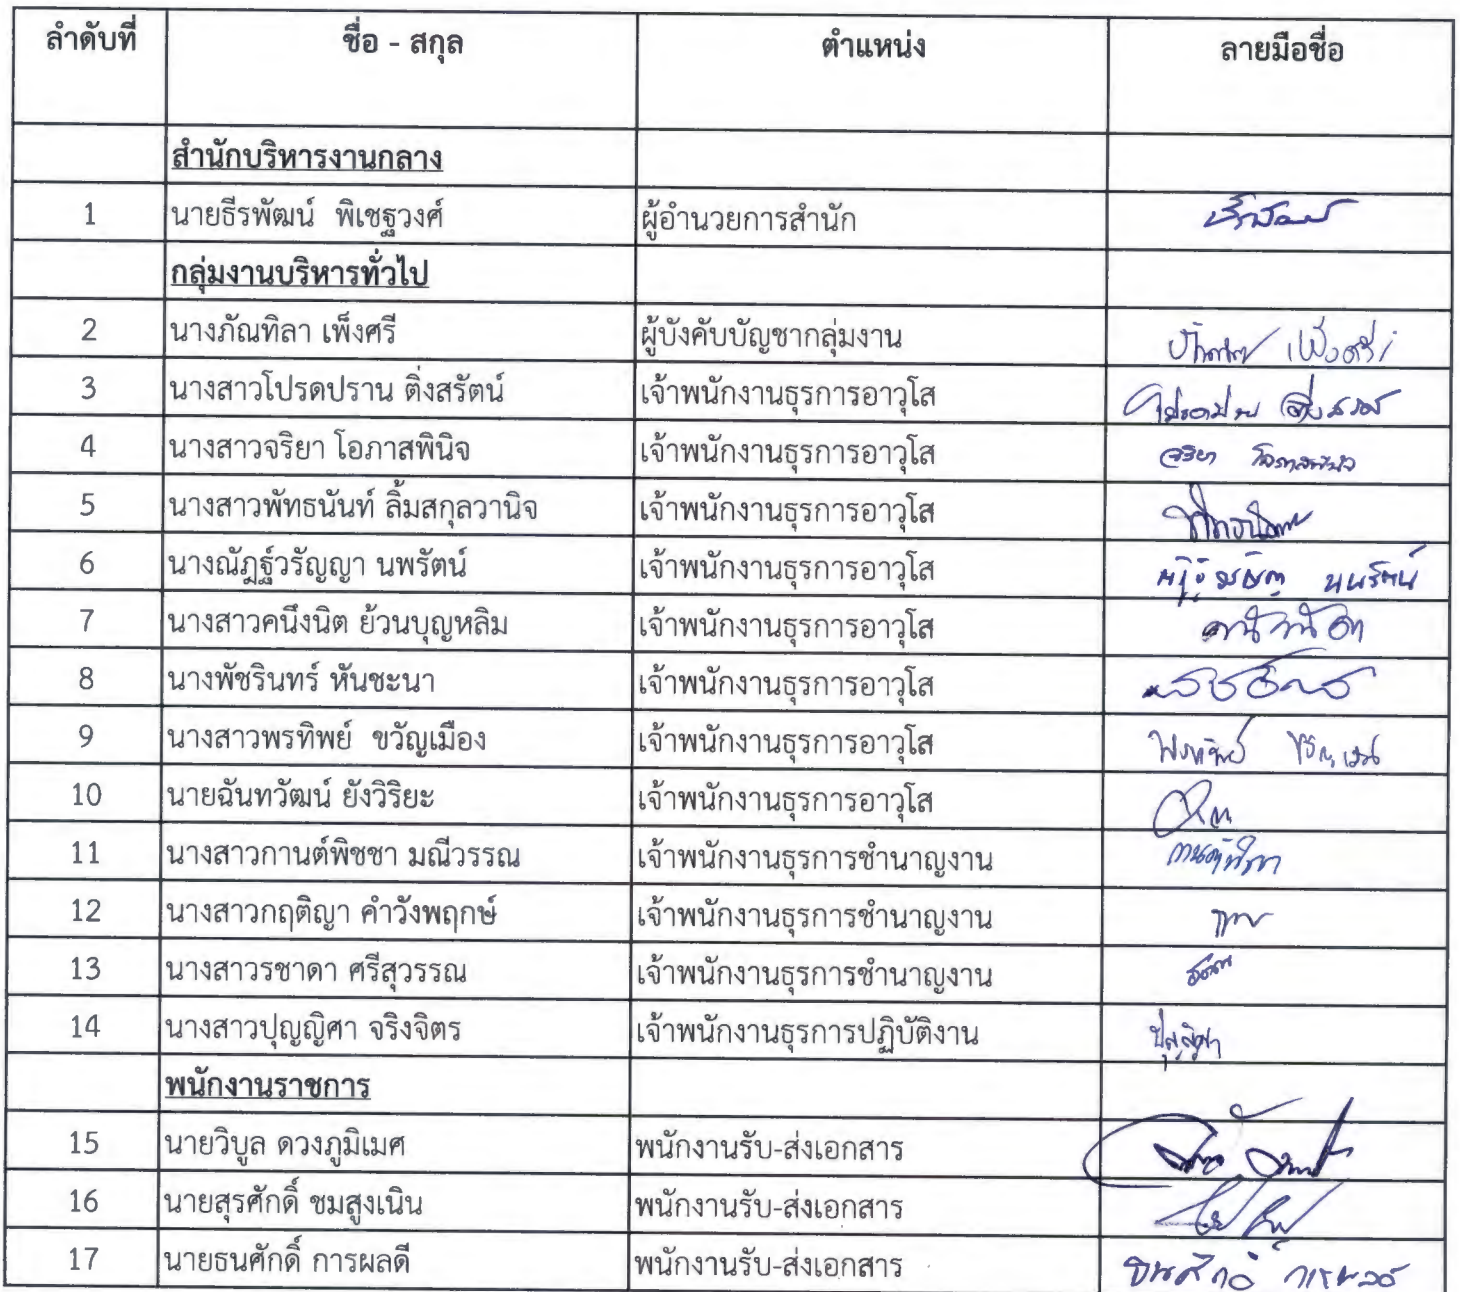 ลำดับที่ ชื่อ - สกุล ตำแหน่ง ลายมือชื่อ
สำนักบริหารงานกลาง
1 นายธีรพัฒน์ พิเชฐวงศ์ ผู้อำนวยการสำนัก ธีรพัฒน์
กลุ่มงานบริหารทั่วไป
2 นางภัณทิลา เพ็งศรี ผู้บังคับบัญชากลุ่มงาน เพ็งศรี
3 นางสาวโปรดปราน ติ่งสรัตน์ เจ้าพนักงานธุรการอาวุโส
4 นางสาวจริยา โอภาสพินิจ เจ้าพนักงานธุรการอาวุโส จริยา โอภาสพินิจ
5 นางสาวพัทธนันท์ ลิ้มสกุลวานิจ เจ้าพนักงานธุรการอาวุโส
6 นางณัฏฐ์วรัญญา นพรัตน์ เจ้าพนักงานธุรการอาวุโส นพรัตน์
7 นางสาวคนึงนิต ย้วนบุญหลิม เจ้าพนักงานธุรการอาวุโส
8 นางพัชรินทร์ หันชะนา เจ้าพนักงานธุรการอาวุโส
9 นางสาวพรทิพย์ ขวัญเมือง เจ้าพนักงานธุรการอาวุโส พรทิพย์
10 นายฉันทวัฒน์ ยังวิริยะ เจ้าพนักงานธุรการอาวุโส
11 นางสาวกานต์พิชชา มณีวรรณ เจ้าพนักงานธุรการชำนาญงาน
12 นางสาวกฤติญา คำวังพฤกษ์ เจ้าพนักงานธุรการชำนาญงาน
13 นางสาวรชาดา ศรีสุวรรณ เจ้าพนักงานธุรการชำนาญงาน
14 นางสาวปุญญิศา จริงจิตร เจ้าพนักงานธุรการปฏิบัติงาน ปุญญิศา
พนักงานราชการ
15 นายวิบูล ดวงภูมิเมศ พนักงานรับ-ส่งเอกสาร
16 นายสุรศักดิ์ ชมสูงเนิน พนักงานรับ-ส่งเอกสาร
17 นายธนศักดิ์ การผลดี พนักงานรับ-ส่งเอกสาร ธนศักดิ์ การผลดี